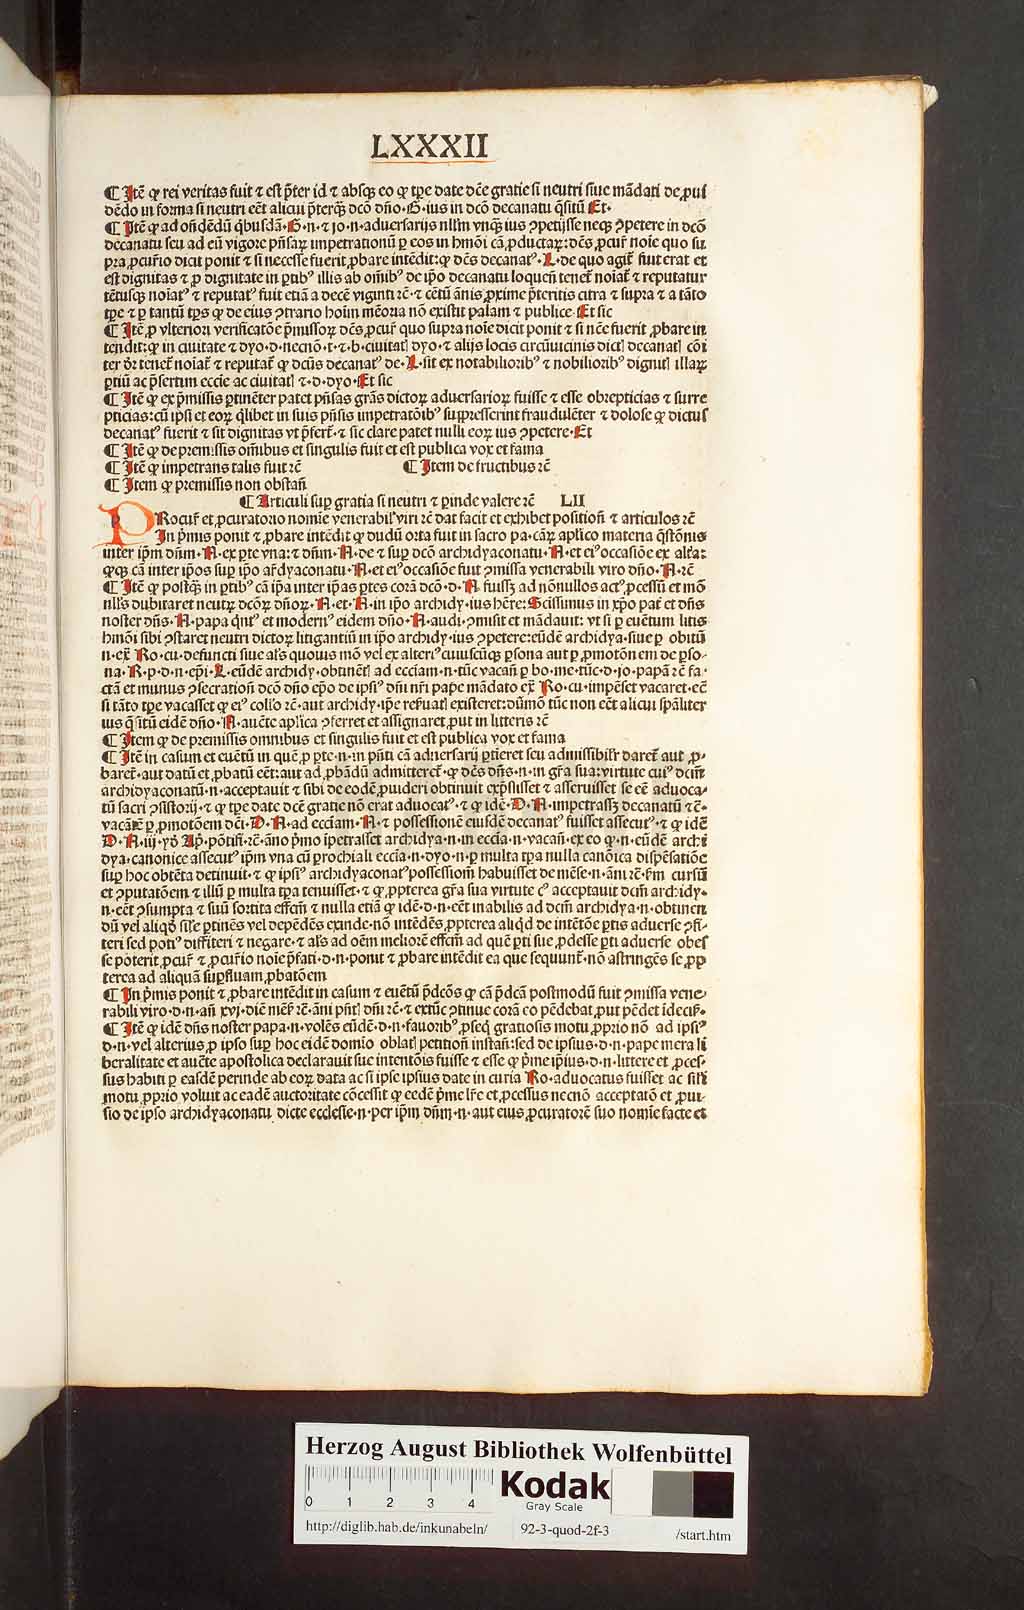 LXXXII
¶ Itē ꝙ rei veritas fuit ⁊ est p̄ter id ⁊ absqꝫ eo ꝙ tꝑe date dc̄e gratie si neutri siue mādati de ꝓui
dēdo in forma si neutri eēt alicui p̄terqꝫ dcō dn̄o·G·ius in dcō decanatu q̄situ Et·
¶ Itē ꝙ ad on̄dēdū qͥbusdā·G·n·⁊ io·n·aduersarijs nll'm vnqꝫ ius ꝯpetijsse neqꝫ ꝯpetere in dcō
decanatu seu ad eū vigore pn̄saꝝ impetrationū ꝑ eos in hmōi cā ꝓductaꝝ: dc̄s ꝓcur̄ noīe quo su
pra ꝓcur̄io dicit ponit ⁊ si necesse fuerit ꝓbare intēdit: ꝙ dc̄s decanatꝰ·L·de quo agit̄ fuit erat et
est dignitas ⁊ ꝓ dignitate in ꝑtibꝰ illis ab om̄ibꝰ de ip̄o decanatu loquen̄ tenet̄ noīat̄ ⁊ reputatur
tētusqꝫ noīatꝰ ⁊ reputatꝰ fuit etiā a decē viginti rē·⁊ cētū ānis ꝓxime p̄teritis citra ⁊ supra ⁊ a tāto
tꝑe ⁊ ꝑ tantū tꝑs ꝙ de eius ꝯtrario hoīm mēoria nō existit palam ⁊ publice·Et sic
¶ Itē ꝓ vlteriori verificatōe p̄missoꝝ dc̄s ꝓcur̄ quo supra noīe dicit ponit ⁊ si nc̄e fuerit ꝓbare in
tendit: ꝙ in ciuitate ⁊ dyo·d·necnō·t·⁊·b·ciuitatꝭ dyo·⁊ alijs locis circūuicinis dictꝭ decanatꝭ cōi
ter dr̄ tenet̄ noīat̄ ⁊ reputat̄ ꝙ dcūs decanatꝰ de·L·sit ex notabilioribꝰ ⁊ nobilioribꝰ dignitꝭ illaꝝ
ꝑtiū ac p̄sertim eccīe ac ciuitatꝭ ⁊·d·dyo·Et sic
¶ Itē ꝙ ex p̄missis ꝑtinēter patet pn̄sas grās dictoꝝ aduersarioꝝ fuisse ⁊ esse obrepticias ⁊ surre
pticias: cū ipsi et eoꝝ qͥlibet in suis pn̄sis impetratōibꝰ suppresserint fraudulēter ⁊ dolose ꝙ dictus
decanatꝰ fuerit ⁊ sit dignitas vt p̄fert̄·⁊ sic clare patet nulli eoꝝ ius ꝯpetere·Et
¶ Itē ꝙ de premissis om̄ibus et singulis fuit et est publica vox et fama
¶ Itē ꝙ impetrans talis fuit rē
¶ Item de fructibus rē
¶ Item ꝙ premissis non obstan̄
¶ Articuli suꝑ gratia si neutri ⁊ ꝑinde valere rē LII
PRocur̄ et ꝓcuratorio nomīe venerabilꝭ viri rē dat facit et exhibet position̄ ⁊ articulos rē
In p̄mis ponit ⁊ ꝓbare intēdit ꝙ dudū orta fuit in sacro pa·cāꝝ aplīco materia q̄stōnis
inter ip̄m dn̄m·A·ex ꝑte vna: ⁊ dn̄m·A·de ⁊ suꝑ dcō archidyaconatu·A·et eiꝰ occasiōe ex altr̄a:
qꝫ cā inter ip̄os suꝑ ip̄o ar̄dyaconatu·A·et eiꝰ occasiōe fuit ꝯmissa venerabili viro dn̄o·A·rē
¶ Itē ꝙ postqꝫ in ꝑtibꝰ cā ip̄a inter ip̄as ꝑtes corā dcō·d·A·fuissꝫ ad nōnullos actꝰ ꝓcessū et mō
nll's dubitaret neutrꝫ dcōꝝ dn̄oꝝ·A·et·A·in ip̄o archidy·ius hr̄e: Scissimus in xp̄o pat̄ et dn̄s
noster dn̄s·A·papa qn̄tꝰ et modernꝰ eidem dn̄o·A·audi·ꝯmisit et mādauit: vt si ꝑ euētum litis
hmōi sibi ꝯstaret neutri dictoꝝ litigantiū in ip̄o archidy·ius ꝯpetere: eūdē archidya·siue ꝑ obitū
n·ex̄ Ro·cu·defuncti siue al's quouis mō vel ex alteriꝰ cuiuscūqꝫ ꝑsona aut ꝑ ꝓmotōnem de ꝑso-
na·R·p·d·n·ep̄i·L·eūdē archidy·obtinen̄ ad ecciam·n·tūc vacan̄ ꝑ bo·me·tūc·d·io·papā rē fa·
ctā et munus ꝯsecration̄ dcō dn̄o ep̄o de ipsiꝰ dn̄i nr̄i pape mādato ex̄ Ro·cu·impēset vacaret·eē
si tāto tꝑe vacasset ꝙ eiꝰ collō rē·aut archidy·ip̄e reſuatꝭ existeret: dūmō tūc non eēt alicui sp̄aliter
ius q̄situ eidē dn̄o·A·auc̄te aplīca ꝯferret et assignaret ꝓut in litteris rē
¶ Item ꝙ de premissis omnibus et singulis fuit et est publica vox et fama
¶ Itē in casum et euētū in quē ꝓ ꝑte·n·in pn̄ti cā aduersarij ꝑtieret seu admissibilr̄ daret̄ aut ꝓ-
baret̄·aut datū et ꝓbatū eēt: aut ad ꝓbādū admitteret̄·ꝙ dc̄s dn̄s·n·in gr̄a sua: virtute cuiꝰ dcm̄
archidyaconatū·n·acceptauit ⁊ sibi de eodē ꝓuideri obtinuit exp̄ssisset ⁊ asseruisset se eē aduoca-
tū sacri ꝯsistorij·⁊ ꝙ tꝑe date dcē gratie nō erat aduocatꝰ·⁊ ꝙ idē·D·A·impetrassꝫ decanatū rē·
vacāte ꝑ ꝓmotōem dc̄i·D·A·ad ecciam·A·⁊ possessionē eiusdē decanatꝰ fuisset assecutꝰ·⁊ ꝙ idē
D·A·iij·yd' Ap̄·pōtifi·rē·āno p̄mo īpetrasset archidya·n·in eccia·n·vacan̄·ex eo ꝙ·n·eūdē archi
dya·canonice assecutꝰ ip̄m vna cū ꝑrochiali eccia·n·dyo·n·ꝑ multa tꝑa nulla canōica dispēsatiōe
suꝑ hoc obtēta detinuit·⁊ ꝙ ipsiꝰ archidyaconatꝰ possessiom̄ habuisset de mēse·n·āni rē·f'm cursū
et ꝯputatōem ⁊ illū ꝑ multa tꝑa tenuisset·⁊ ꝙ ꝓpterea gr̄a sua virtute cꝰ acceptauit dcm̄ archidy·
n·eēt ꝯsumpta ⁊ suū sortita effcm̄ ⁊ nulla etiā ꝙ idē·d·n·eēt inabilis ad dcm̄ archidya·n·obtinen
dū vel aliqd' sile ꝑtinēs vel depēdēs exinde·nō intēdēs ꝓpterea aliqͥd de intētōe ꝑtis aduerse ꝯfi-
teri sed potiꝰ diffiteri ⁊ negare·⁊ al's ad oēm meliorē effcm̄ ad quē ꝑti sue ꝓdesse ꝑti aduerse obes
se poterit ꝓcur̄ ⁊ ꝓcur̄io noīe p̄fati·d·n·ponit ⁊ ꝓbare intēdit ea que sequunt̄·nō astringēs se ꝓp
terea ad aliquā suꝑfluam ꝓbatōem
¶ In p̄mis ponit ⁊ ꝓbare intēdit in casum ⁊ euētū p̄dcōs ꝙ cā p̄dcā postmodū fuit ꝯmissa vene-
rabili viro·d·n·an̄ xvj·diē mēs̄ rē·āni pn̄tꝭ dn̄i rē·⁊ extūc ꝯtinue corā eo pēdebat ꝓut pēdet idecir̄·
¶ Itē ꝙ idē dn̄s noster papa·n·volēs eūdē·d·n·fauoribꝰ ꝓseq̄ gratiosis motu ꝓprio nō ad ipsiꝰ
d·n·vel alterius ꝓ ipso suꝑ hoc eidē domīo oblatꝭ petition̄ instan̄: sed de ipsius·d·n·pape mera li
beralitate et auc̄te apostolica declarauit sue intentōis fuisse ⁊ esse ꝙ p̄me ip̄ius·d·n·littere et ꝓces-
sus habiti ꝑ easdē perinde ab eoꝝ data ac si ipse ipsius date in curia Ro·aduocatus fuisset ac sili
motu ꝓprio voluit ac eadē auctoritate cōcessit ꝙ eedē p̄me lr̄e et ꝓcessus necnō acceptatō et ꝓui-
sio de ipso archidyaconatu dicte ecclesie·n·per ip̄m dn̄m·n·aut eius ꝓcuratorē suo nomīe facte et
Herzog August Bibliothek Wolfenbüttel
0 1 2 3 4
Kodak
Gray Scale
http://diglib.hab.de/inkunabeln/ 92-3-quod-2f-3 /start.htm